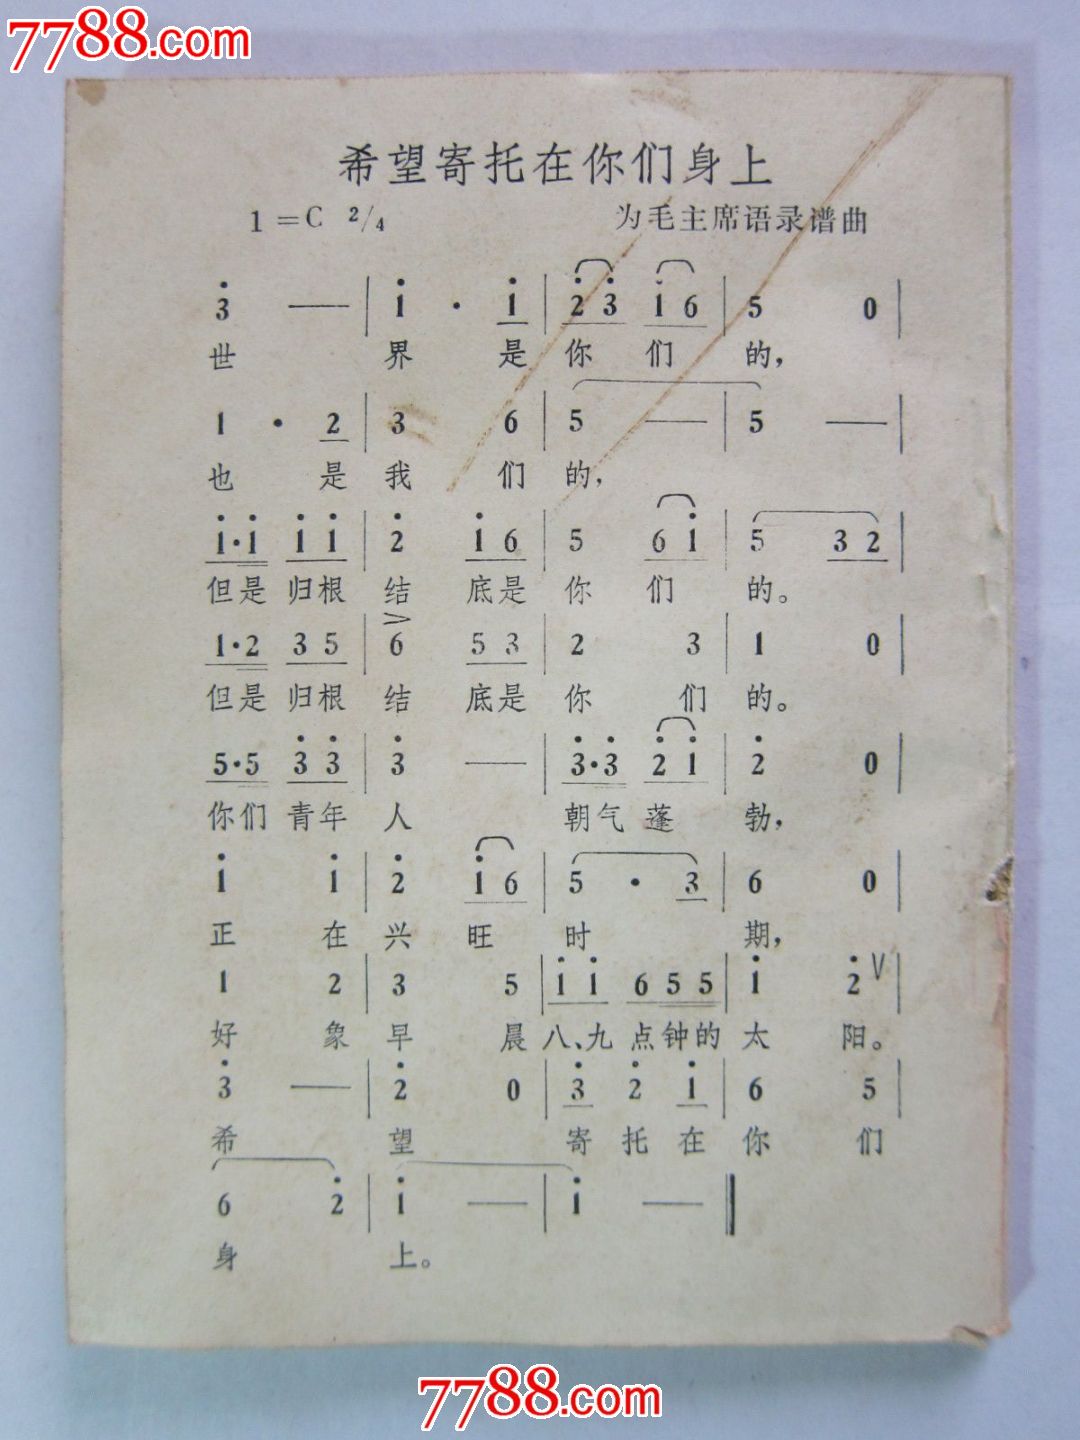 7788.com
希望寄托在你们身上
1=C 2/4 为毛主席语录谱曲
3̇ — | 1̇ · 1̇ | 2̇ 3̇ 1̇ 6 | 5 0 |
世 界 是 你 们 的，
1 · 2 | 3 6 | 5 — | 5 — |
也 是 我 们 的，
1̇·1̇ 1̇ 1̇ | 2̇ 1̇ 6 | 5 6 1̇ | 5 3 2 |
但是 归根 结 底是 你 们 的。
1·2 3 5 | 6 5 3 | 2 3 | 1 0 |
但是 归根 结 底是 你 们 的。
5·5 3̇ 3̇ | 3̇ — | 3̇·3̇ 2̇ 1̇ | 2̇ 0 |
你们 青年 人 朝气 蓬 勃，
1̇ 1̇ | 2̇ 1̇ 6 | 5 · 3 | 6 0 |
正 在 兴 旺 时 期，
1 2 | 3 5 | 1̇ 1̇ 6 5 5 | 1̇ 2̇ V |
好 象 早 晨 八、九 点钟的 太 阳。
3̇ — | 2̇ 0 | 3̇ 2̇ 1̇ | 6 5 |
希 望 寄 托 在 你 们
6 2̇ | 1̇ — | 1̇ — ‖
身 上。
7788.com